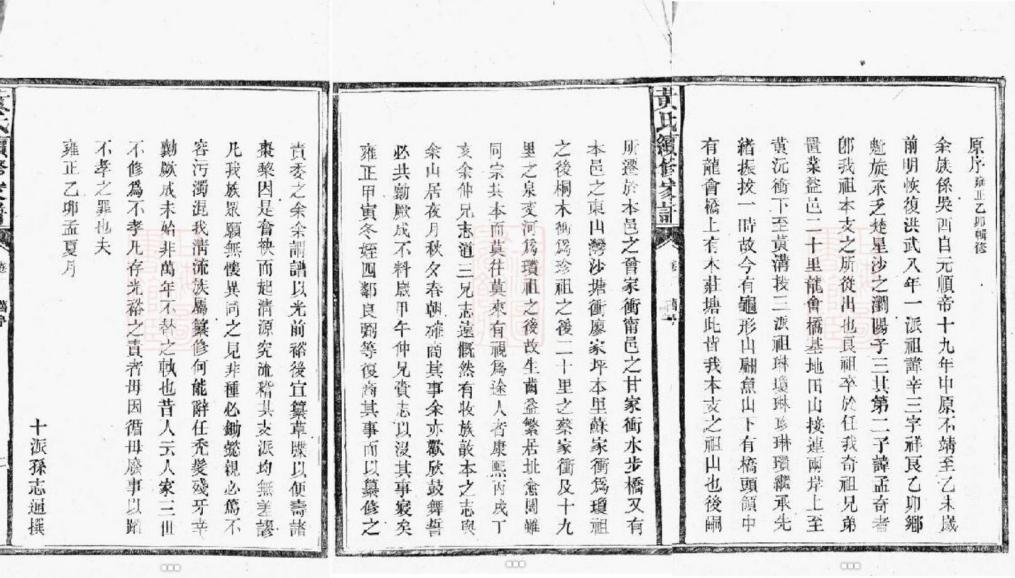 原序 雍正乙卯輯修
余族係吳西自元順帝十九年中原不靖至乙未歲
前明恢復洪武又年一派祖諱辛三字祥良乙卯鄉
魁旋承乏楚星沙之瀏陽子三其第二子諱孟奇者
卽我祖本支之所從出也良祖卒於任我奇祖兄弟
置業益邑二十里龍會橋基地田山接連兩岸上至
黃沅衝下至黃溝接三派祖琳瓊琳珍琳瓚纘承先
緒振拔一時故今有龜形山翮魚山下有橋頭韻中
有龍會橋上有木莊塘此皆我本支之祖山也後嗣
黃氏續修家譜
所遷於本邑之曾家衝甯邑之甘家衝水步橋又有
本邑之東山灣沙塘衝廖家坪本里蘇家衝爲瓊祖
之後桐木衝爲珍祖之後二十里之蔡家衝及十九
里之泉交河爲瓚祖之後故生齒益繁居址愈闊雖
同宗共本而莫往莫來有視爲途人者康熙丙戌丁
亥余仲兄志道三兄志遠慨然有收族敬本之志與
余山居夜月秋夕春朝確商其事余亦歡欣鼓舞誓
必共勷厥成不料歲甲午仲兄賫志以沒其事寢矣
雍正甲寅冬姪四鄰良弼等復商其事而以纂修之
責委之余余謂譜以光前裕後宜纂草牒以便壽諸
棗棃因是奮袂而起清源究流稽其支派均無差謬
凡我族眾願無懷異同之見非種必鋤懿親必篤不
容污濁混我清流族屬纂修何能辭任禿髮殘牙幸
勷厥成未始非萬年不朽之軌也昔人云人家三世
不修爲不孝凡存光裕之責者毋因循毋廢事以蹈
不孝之罪也夫
雍正乙卯孟夏月
十派孫志迥撰